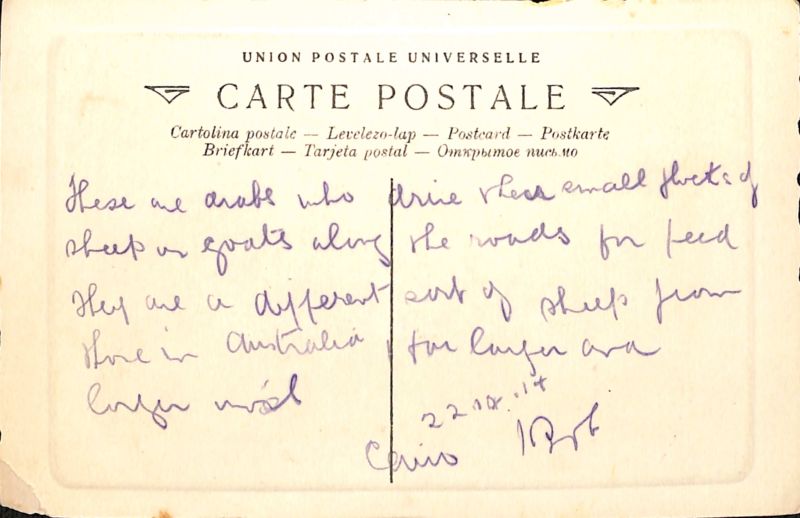 UNION POSTALE UNIVERSELLE
CARTE POSTALE
Cartolina postale — Levelezo-lap — Postcard — Postkarte
Briefkart — Tarjeta postal — Открытое письмо
These are arabs who drive their small flocks of
sheep or goats along the roads for feed
They are a different sort of sheep from
those in Australia, far larger and
longer
22
Cairo